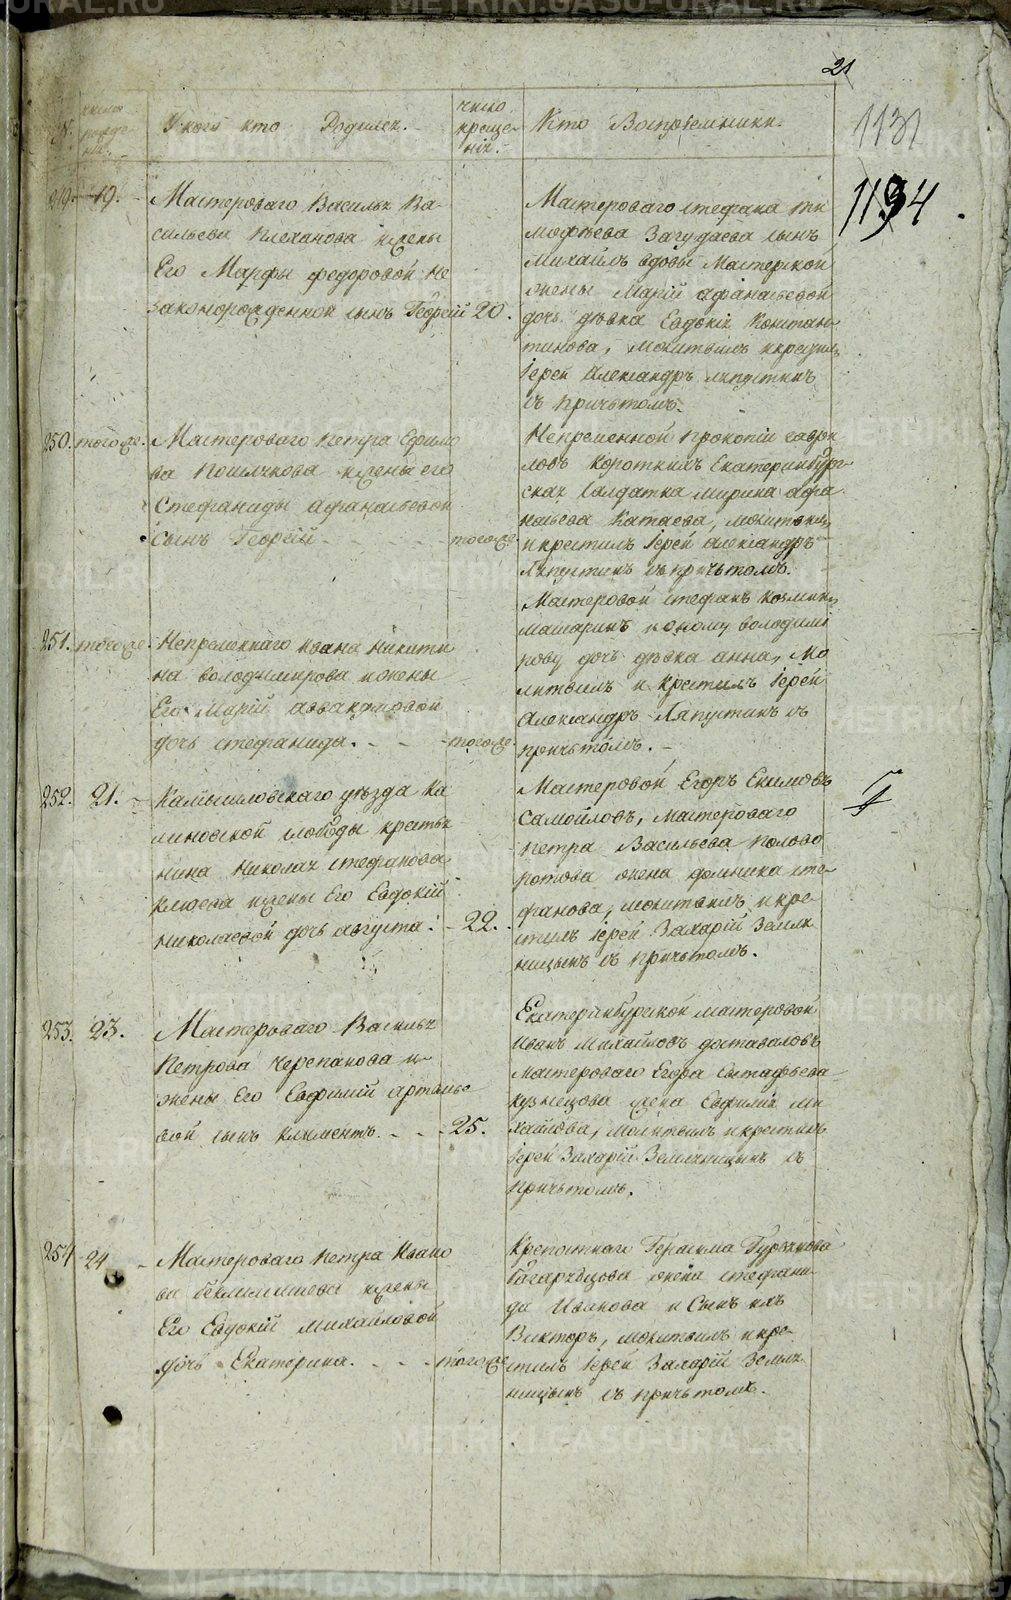 21
1131
1134
№
число рожде-
нія.
У кого кто Родился.
число
креще-
нія.
Кто Воспріемники.
249. 19. Мастероваго Василья Ва-
сильева Плеханова жены
Его Марфы Федоровой не
законорожденной сынъ Георгій 20.
Мастероваго стефана ти
мофѣева Загудаева сынъ
Михайлъ вдовы Мастерской
жены Маріи афанасьевой
дочь дѣвка Евдокія Констан-
тинова, молитвилъ и крестилъ
Іерей Александръ ляпустинъ
съ причьтомъ.
250. тогоже. Мастероваго Петра Ефимо
ва жены его
Стефаниды афанасьевой
сынъ Георгій тогоже
Непременной Прокопій гаври
ловъ Короткихъ Екатеринбург-
ская Солдатка Марина афа
насьева Катаева, молитвилъ
и крестилъ Іерей александръ
Ляпустинъ съ причьтомъ.
251. тогоже. Непременнаго Ивана Никити
на володимирова и жены
Его Маріи
дочь стефанида. тогоже.
Мастеровой стефанъ козминъ
машаринъ и оному володими
рову дочь дѣвка анна, Мо
литвилъ и крестилъ Іерей
Александръ Ляпустинъ съ
причьтомъ.
252. 21. Камышловскаго уѣзда Ка
линовской слободы крестья
нина Николая стефанова
клюева жены Его Евдокіи
николаевой дочь августа. 22.
Мастеровой Егоръ Екимовъ
Самойловъ, мастероваго
петра Васильева полово
ротова жена домника сте-
фанова, молитвилъ и кре-
стилъ Іерей Захарій Земля
ницынъ съ причьтомъ.
253. 23. Мастероваго Василья
Петрова Черепанова и
жены Его Евфиміи артемье
вой сынъ Климентъ. 25.
Екатеринбургской мастеровой
Иванъ Михайловъ доставаловъ
мастероваго Егора Евстафьева
кузнецова жена Евфимія ми
хайлова, молитвилъ и крестилъ
Іерей Захарій Земляницынъ съ
причьтомъ.
254 24 Мастероваго петра Ивано
ва беклемишева жены
Его Евдокіи михайловой
дочь Екатерина. тогоже
Крепостнаго Герасима
жена стефани-
да Иванова и Сынъ ихъ
Викторъ, молитвилъ и кре-
стилъ Іерей Захарій Земля
ницынъ съ причьтомъ.
METRIKI.GASO-URAL.RU